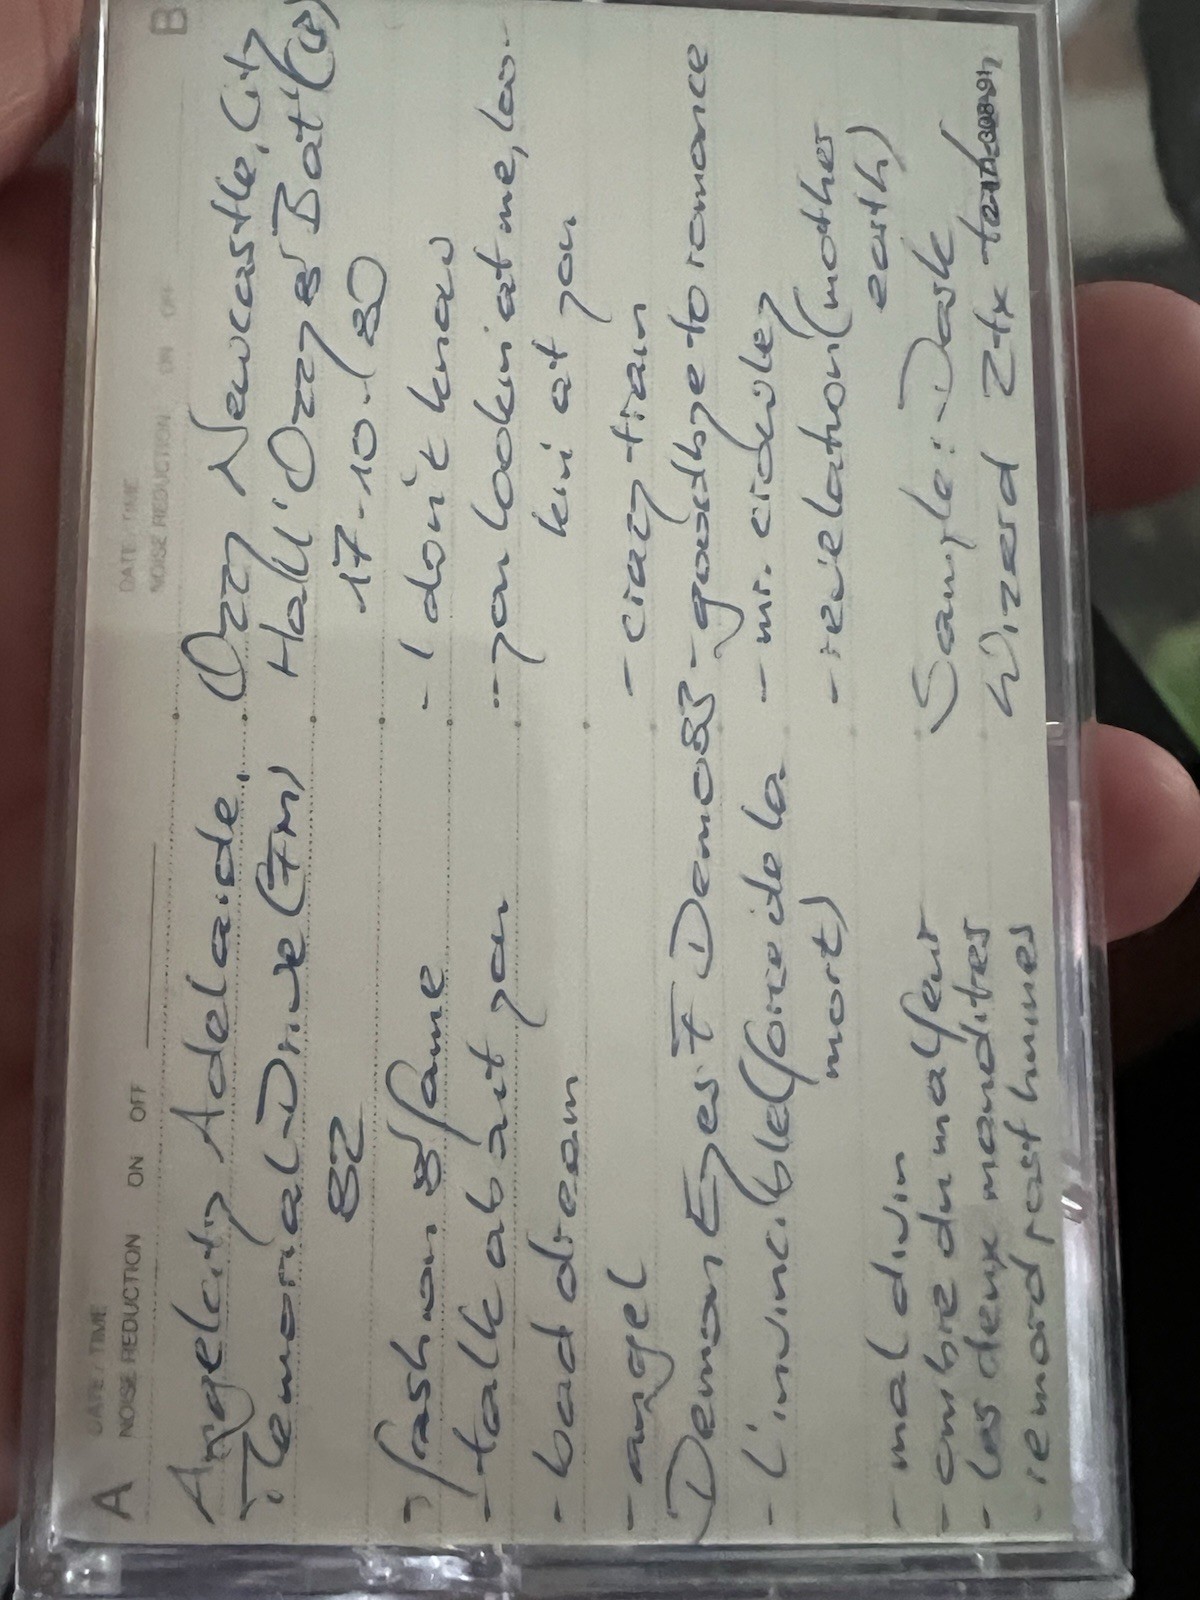 A DATE/TIME
NOISE REDUCTION ON OFF
Angelcity Adelaide,
Memorial-Drive (FM)
82
- fashion & fame
- talk about you
- bad dream
- angel
Demon Eyes F Demo 83
- L'invincible (force de la
mort)
- mal divin
- ombre du malfeur
- les deux maudites
- remord posthumes
B
DATE/TIME
NOISE REDUCTION ON OFF
Ozzy Newcastle, City
Hall "Ozzy & Bat" (r)
17.-10./80
- I don't know
- you lookin at me, loo-
kin at you
- crazy train
- goodbye to romance
- mr. crowley
- revelation (mother
earth)
Sample: Dark
Wizard 2tx